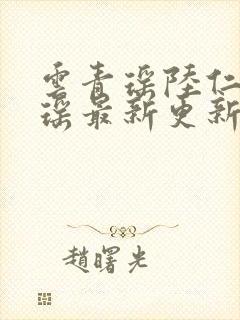 雲青瑤陸仁
瑤最新更新
趙曙光